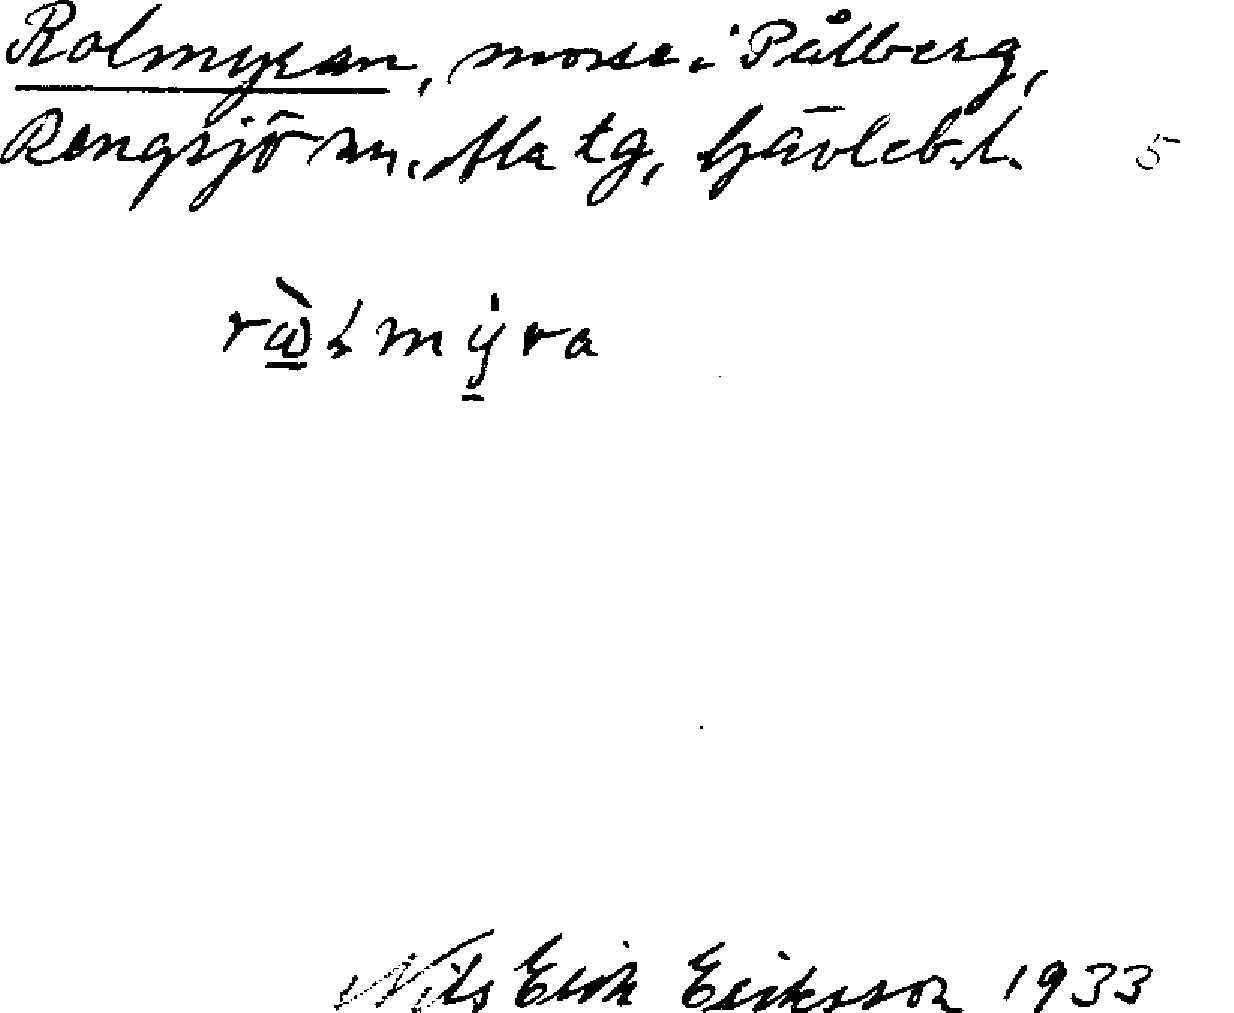 Rolmyran, mosse i Pålberg,
Rengsjö sn, Ala tg, Gävleb. l. 5
Nils Erik Eriksson 1933